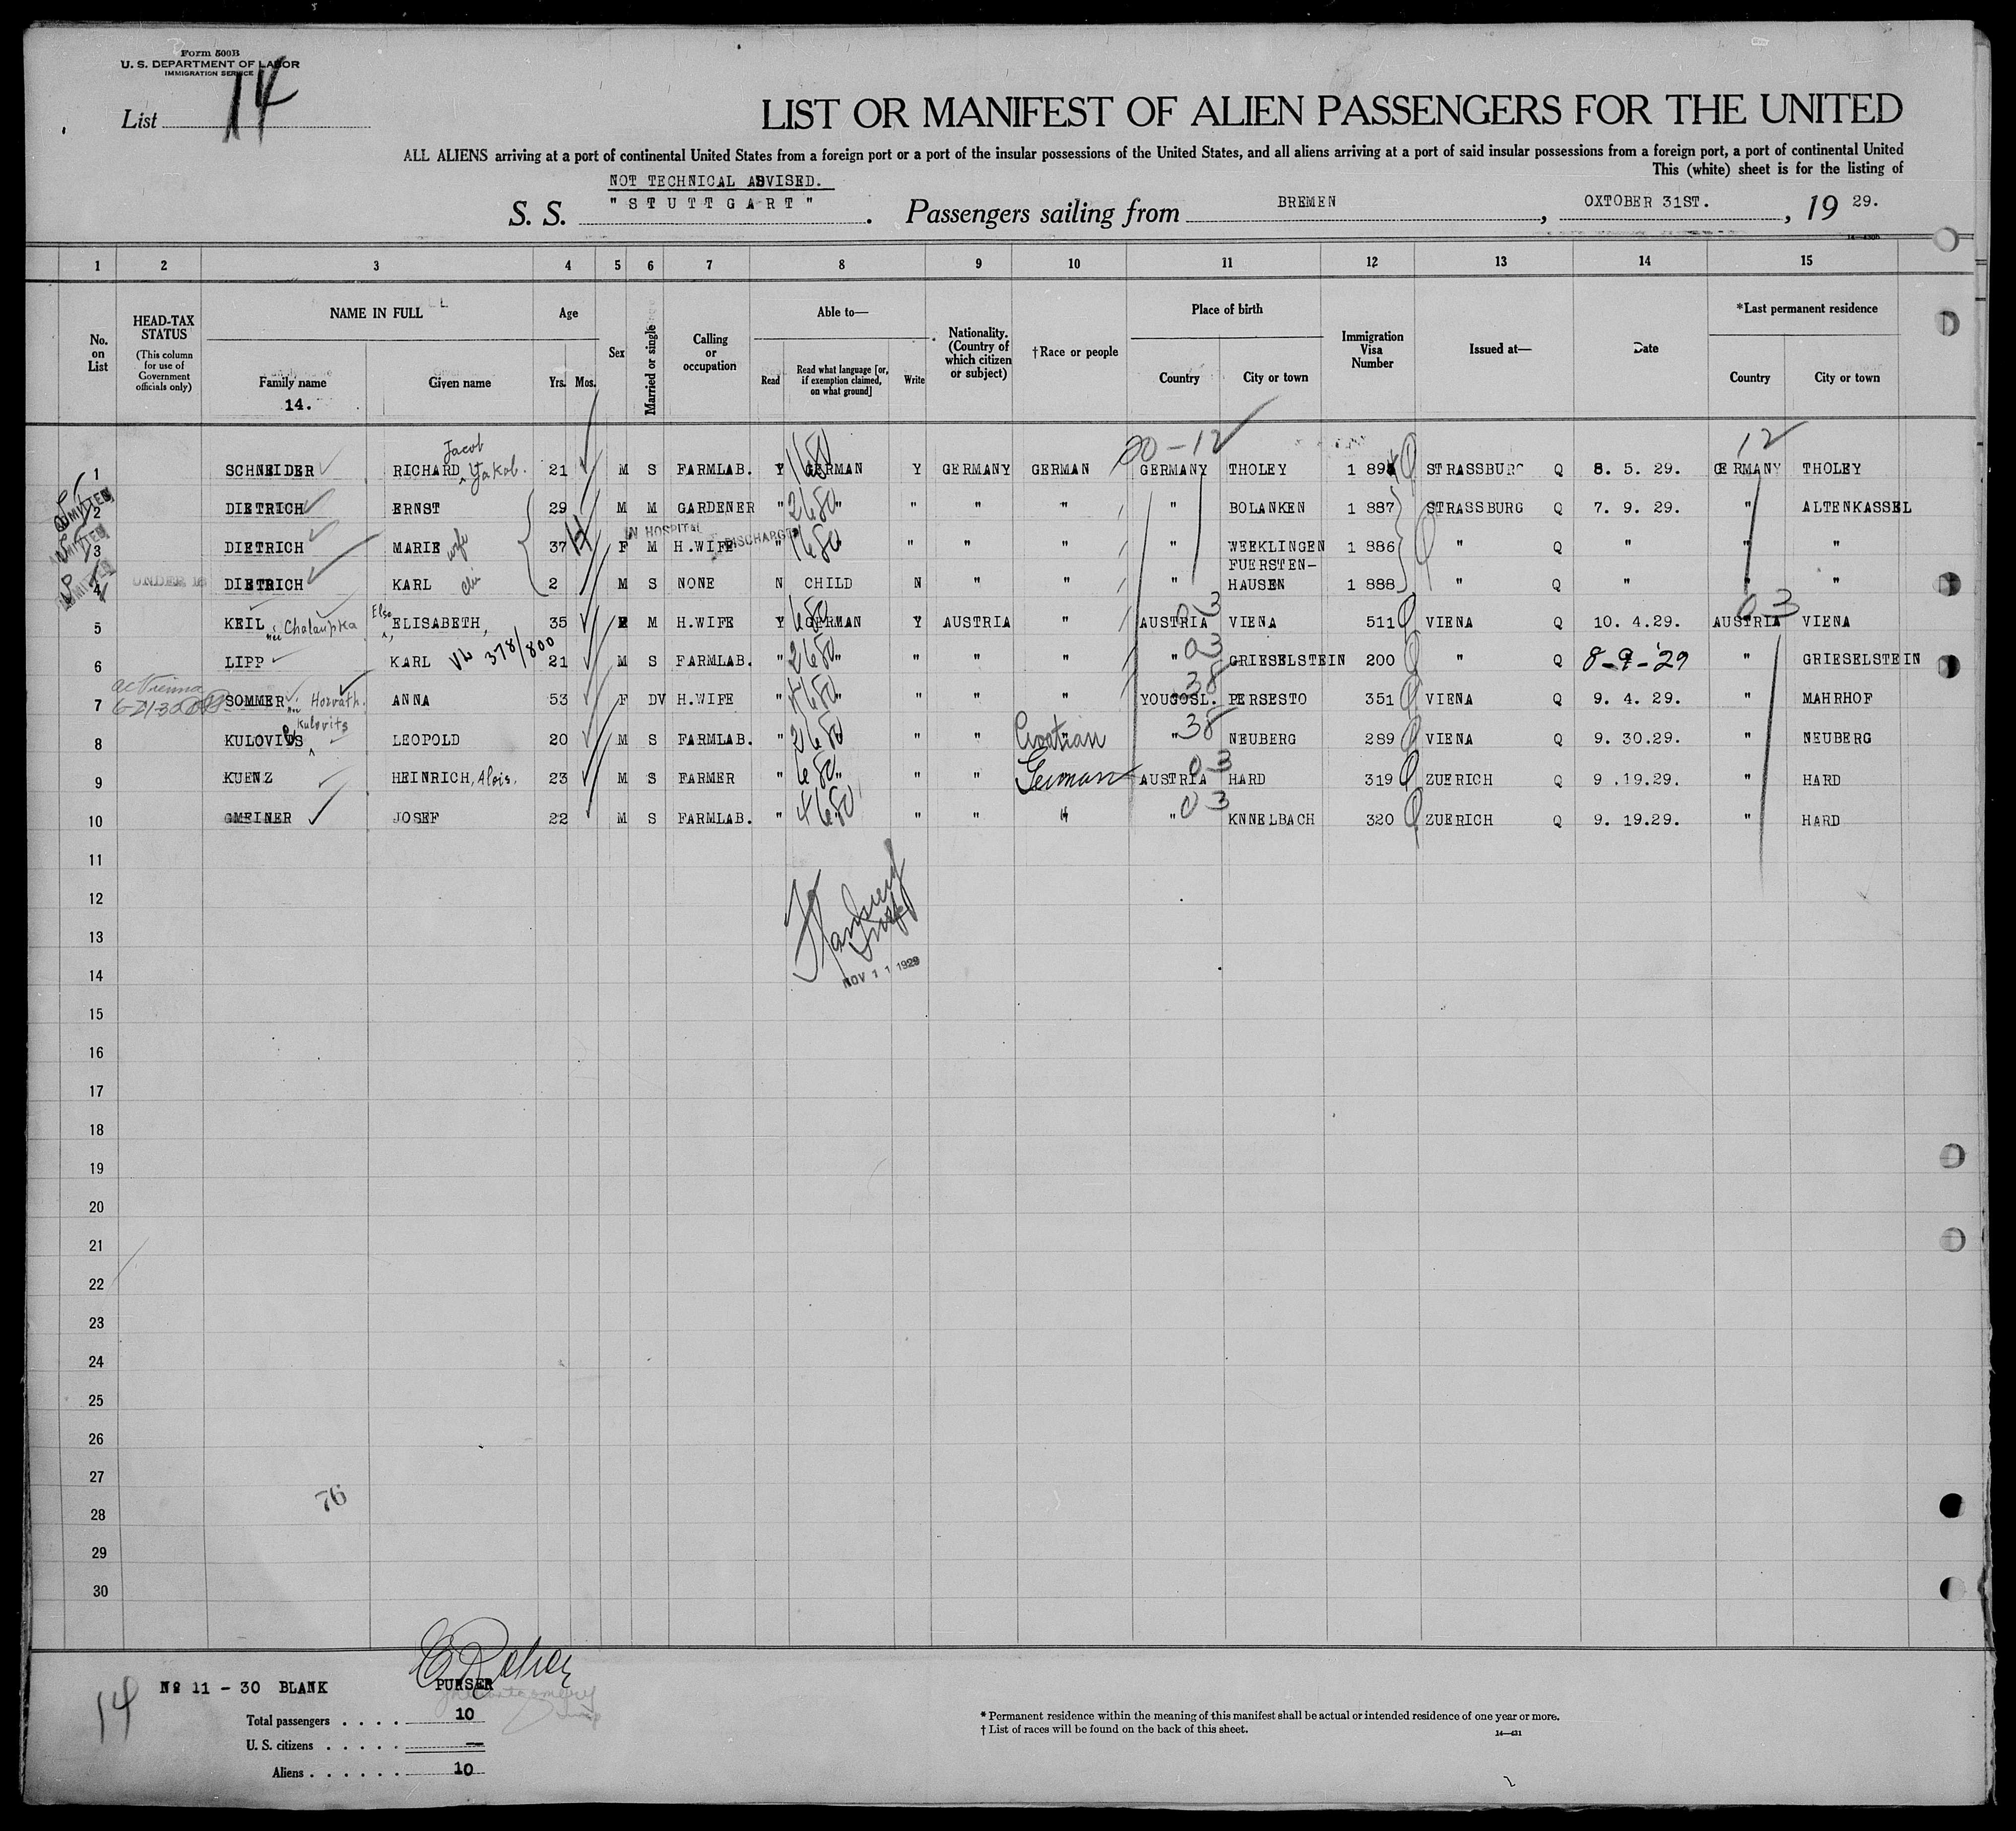 Form 500B
U. S. DEPARTMENT OF LABOR
IMMIGRATION SERVICE
List 14
LIST OR MANIFEST OF ALIEN PASSENGERS FOR THE UNITED
ALL ALIENS arriving at a port of continental United States from a foreign port or a port of the insular possessions of the United States, and all aliens arriving at a port of said insular possessions from a foreign port, a port of continental United
This (white) sheet is for the listing of
NOT TECHNICAL ADVISED.
S. S. "STUTTGART". Passengers sailing from BREMEN, OXTOBER 31ST., 19 29.
1 2 3 4 5 6 7 8 9 10 11 12 13 14 15
No. on List
HEAD-TAX STATUS
(This column for use of Government officials only)
NAME IN FULL
Family name
14.
Given name
Age
Yrs. Mos.
Sex
Married or single
Calling or occupation
Able to—
Read
Read what language [or, if exemption claimed, on what ground]
Write
Nationality. (Country of which citizen or subject)
†Race or people
Place of birth
Country
City or town
Immigration Visa Number
Issued at—
Date
*Last permanent residence
Country
City or town
20-12 12
Jacob
1 SCHNEIDER RICHARD Yakob. 21 M S FARMLAB. Y GERMAN Y GERMANY GERMAN GERMANY THOLEY 1 894 STRASSBURG Q 8. 5. 29. GERMANY THOLEY
ADMITTED 2 DIETRICH ERNST 29 M M GARDENER " " " " " " BOLANKEN 1 887 STRASSBURG Q 7. 9. 29. " ALTENKASSEL
IN HOSPITAL DISCHARGED
ADMITTED 3 DIETRICH MARIE wife 37 F M H.WIFE " " " " " " WEEKLINGEN 1 886 " Q " " "
FUERSTEN-
ADMITTED 4 UNDER 16 DIETRICH KARL 2 M S NONE N CHILD N " " " HAUSEN 1 888 " Q " " "
03 03
5 KEIL née Chalaupka Else ELISABETH, 35 F M H.WIFE Y GERMAN Y AUSTRIA " AUSTRIA VIENA 511 VIENA Q 10. 4.29. AUSTRIA VIENA
03
6 LIPP KARL VL 378/800 21 M S FARMLAB. " " " " " " GRIESELSTEIN 200 " Q 8-9-'29 " GRIESELSTEIN
38
7 SOMMER née Horvath. ANNA 53 F DV H.WIFE " " " " " YOUGOSL. PERSESTO 351 VIENA Q 9. 4. 29. " MAHRHOF
Kulovits
38
8 KULOVIDS LEOPOLD 20 M S FARMLAB. " " " " Croatian " NEUBERG 289 VIENA Q 9. 30.29. " NEUBERG
03
9 KUENZ HEINRICH, Alois. 23 M S FARMER " " " " German AUSTRIA HARD 319 ZUERICH Q 9 .19.29. " HARD
03
10 GMEINER JOSEF 22 M S FARMLAB. " " " " " " KNNELBACH 320 ZUERICH Q 9. 19.29. " HARD
11
12
13
14
NOV 11 1929
15
16
17
18
19
20
21
22
23
24
25
26
27
76
28
29
30
14
No 11 - 30 BLANK
PURSER
Total passengers . . . . 10
U. S. citizens . . . . . —
Aliens . . . . . . 10
* Permanent residence within the meaning of this manifest shall be actual or intended residence of one year or more.
† List of races will be found on the back of this sheet.
14—431